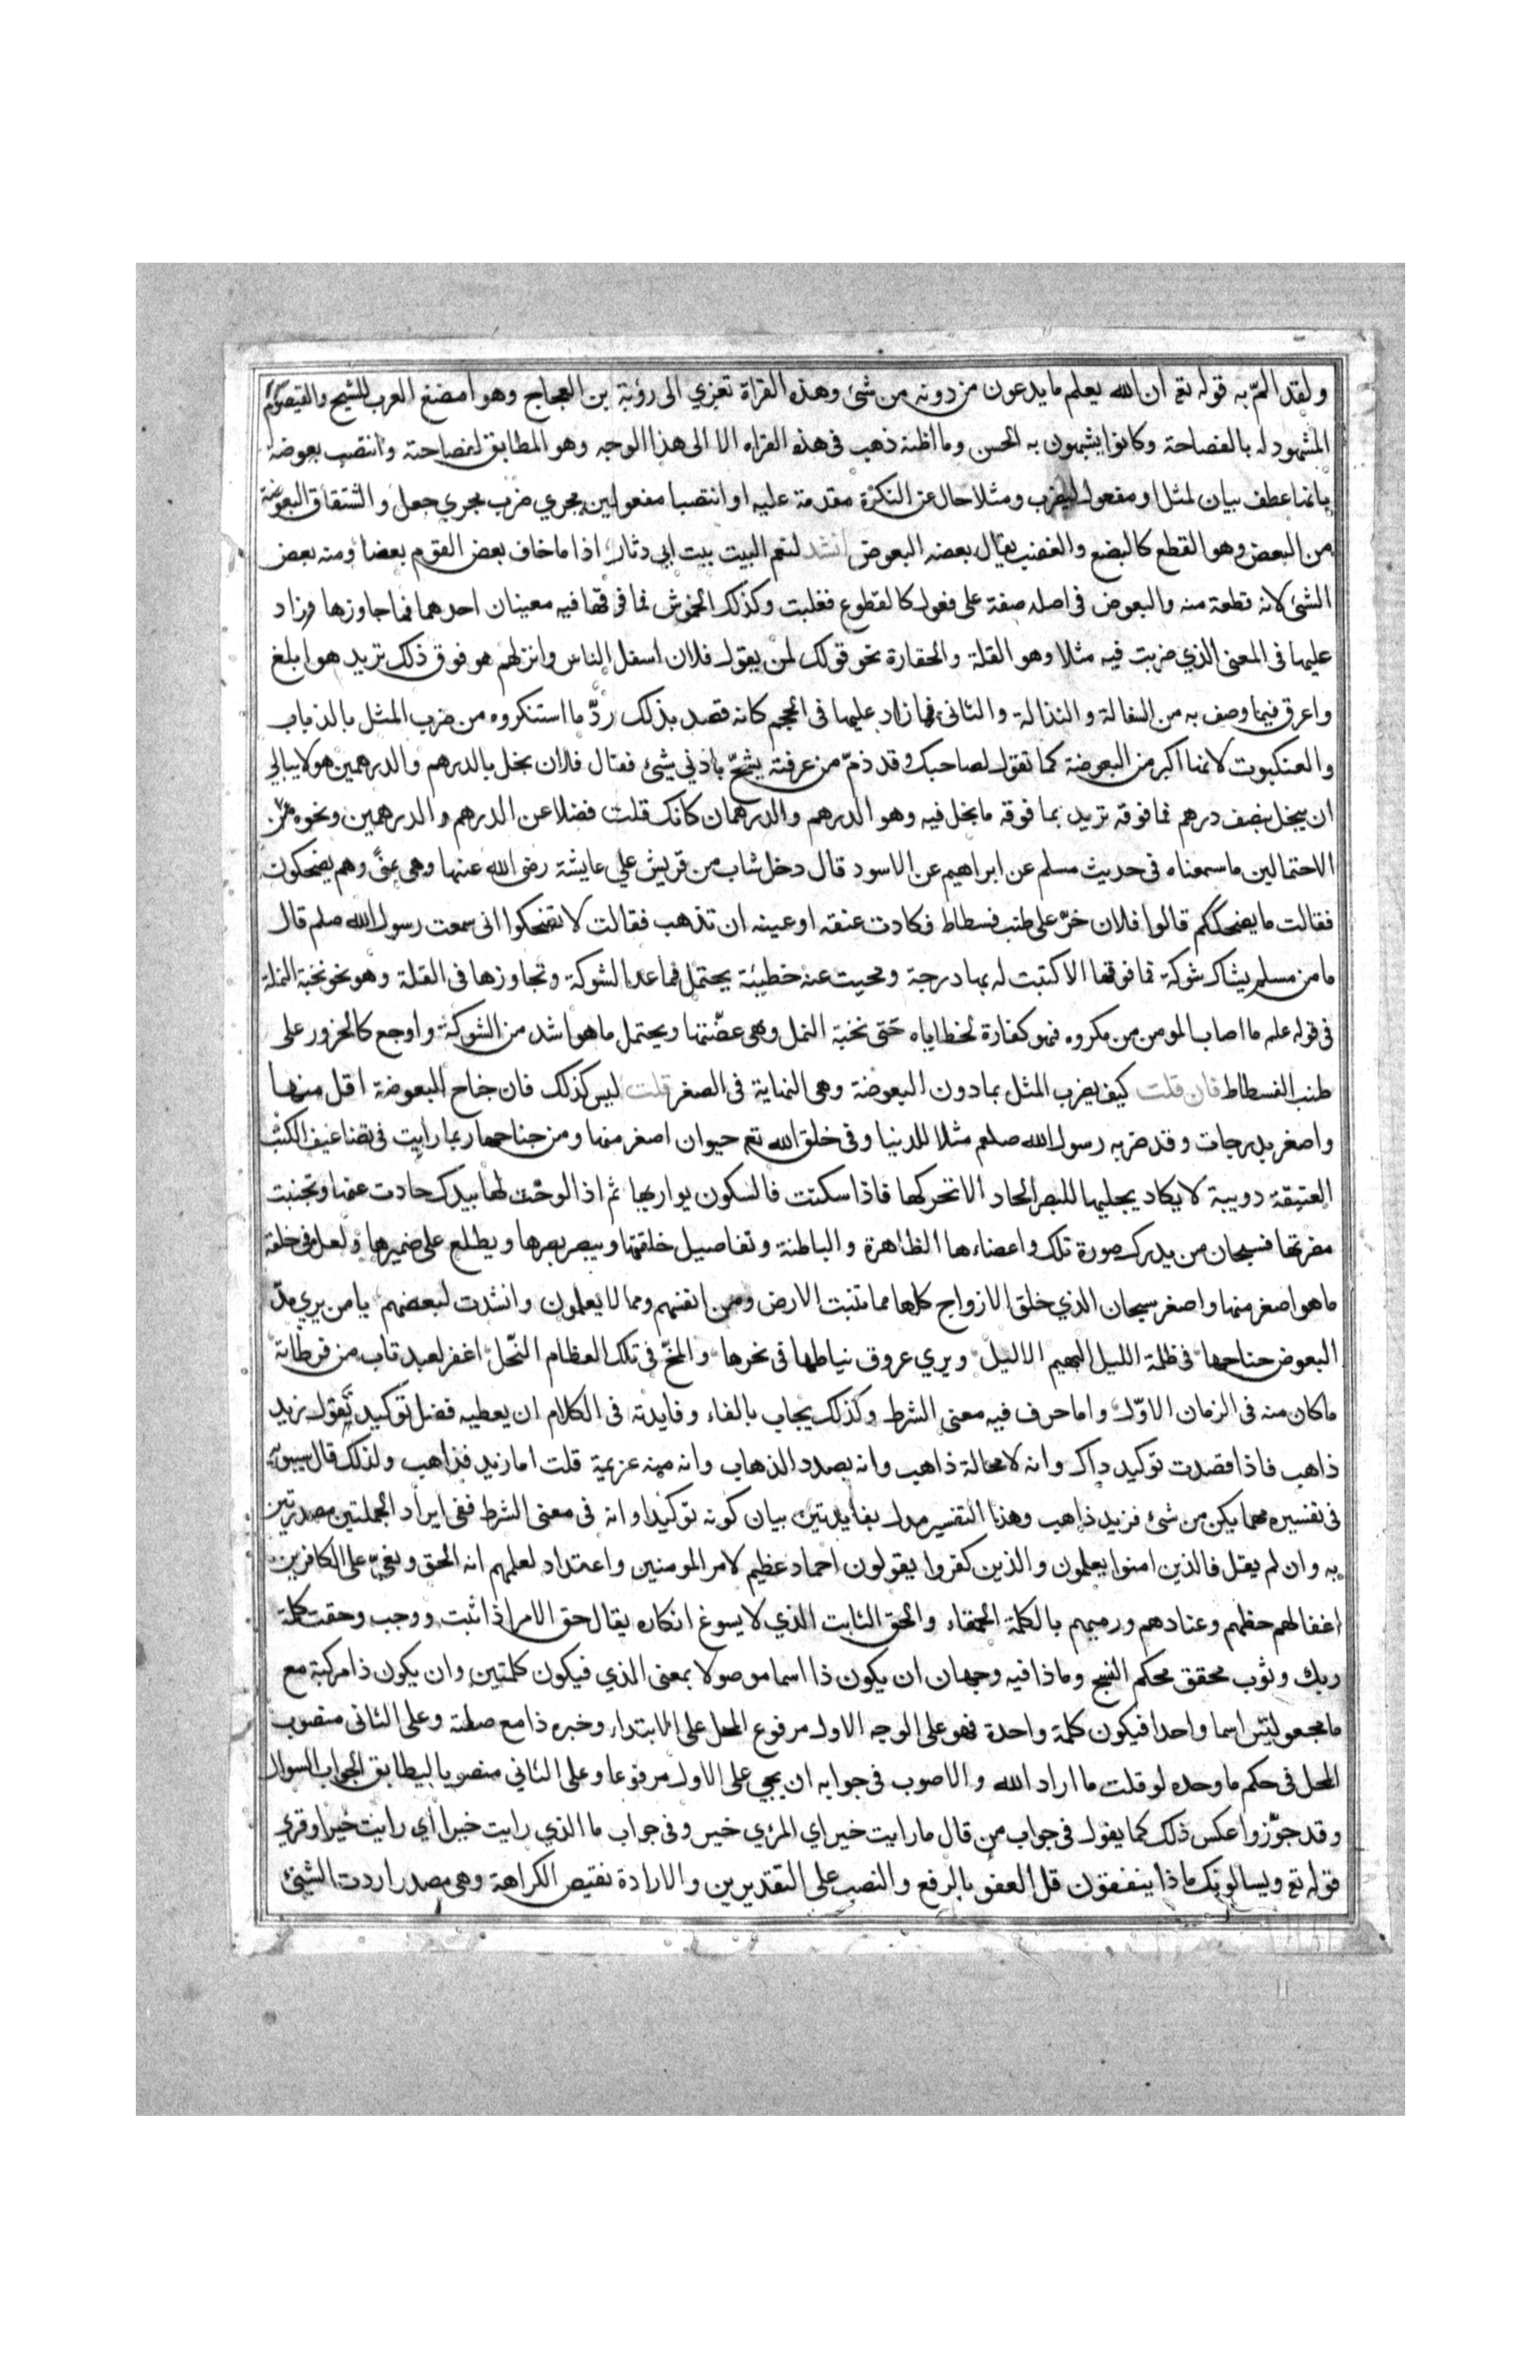 ولقد المّ به قوله تع ان الله يعلم ما يدعون من دونه من شئ وهذه القراة تعزي الى رؤبة بن العجاج وهو امضغ العرب للشيح والقيصوم
المشهود له بالفصاحة وكانوا يشبهون به الحسن وما اظنه ذهب في هذه القراه الا الى هذا الوجه وهو المطابق لفصاحته وانتصب بعوضة
بانها عطف بيان لمثل او مفعول ليضرب ومثلا حال عن النكرة مقدمة عليه او انتصبا مفعولين يجري ضرب مجري جعل واشتقاق البعوضة
من البعض وهو القطع كالبضع والعضب يقال بعضه البعوض انشد لنعم البيت بيت ابي دثار اذا ما خاف بعض القوم بعضا ومنه بعض
الشئ لانه قطعة منه والبعوض في اصله صفة على فعول كالقطوع فغلبت وكذلك الخموش فما فوقها فيه معينان احدهما فما جاوزها وزاد
عليها في المعنى الذي ضربت فيه مثلا وهو القلة والحقارة نحو قولك لمن يقول فلان اسفل الناس وانزلهم هو فوق ذلك تريد هو ابلغ
واعرق فيما وصف به من السفالة والنذالة والثاني فما زاد عليها في الحجم كانه قصد بذلك ردّ ما استنكروه من ضرب المثل بالذباب
والعنكبوت لانهما اكبر من البعوضة كما تقول لصاحبك وقد ذمّ من عرفته يشحّ بادني شئ فقال فلان بخل بالدرهم والدرهمين هو لا يبالي
ان يبخل بنصف درهم فما فوقه تريد بما فوقه ما بخل فيه وهو الدرهم والدرهمان كانك قلت فضلا عن الدرهم والدرهمين ونحوه في
الاحتمالين ما سمعناه في حديث مسلم عن ابراهيم عن الاسود قال دخل شاب من قريش علي عايشة رضي الله عنها وهي بمنً وهم يضحكون
فقالت ما يضحككم قالوا فلان خرّ على طنب فسطاط فكادت عنقه او عينه ان تذهب فقالت لا تضحكوا اني سمعت رسول الله صلم قال
ما من مسلم يشاك شوكة فما فوقها الا كتبت له بها درجة ومحيت عنه خطيئة يحتمل فما عدا الشوكة وتجاوزها في القلة وهو نحو نخبة النملة
في قوله علم ما اصاب المومن من مكروه فهو كفارة لخطاياه حتى نخبة النمل وهي عضّتها ويحتمل ما هو اشد من الشوكة واوجع كالخرور على
طنب الفسطاط فان قلت كيف يضرب المثل بما دون البعوضة وهي النهاية في الصغر قلت ليس كذلك فان جناح البعوضة اقل منها
واصغر بدرجات وقد ضربه رسول الله صلعم مثلا للدنيا وفي خلق الله تع حيوان اصغر منها ومن جناحها ربما رايت في تضاعيف الكتب
العتيقة دويبة لا يكاد يجليها للبصر الحاد الا تحركها فاذا سكنت فالسكون يواريها ثم اذا لوحت لها بيدك حادت عنها وتجنبت
مضرتها فسبحان من يدرك صورة تلك واعضاءها الظاهرة والباطنة وتفاصيل خلقتها ويبصر بصرها ويطلع على ضميرها ولعل في خلقه
ما هو اصغر منها واصغر سبحان الذي خلق الازواج كلها مما تنبت الارض ومن انفسهم ومما لا يعلمون وانشدت لبعضهم يا من يري مدّ
البعوض جناحها في ظلمة الليل البهيم الاليل ويري عروق نياطها في نحرها والمخّ في تلك العظام النّحل اغفر لعبد تاب من فرطاته
ما كان منه في الزمان الاوّل واما حرف فيه معنى الشرط وكذلك يجاب بالفاء وفايدته في الكلام ان يعطيه فضل توكيد تقول زيد
ذاهب فاذا قصدت توكيد ذاك وانه لا محالة ذاهب وانه بصدد الذهاب وانه منه عزيمة قلت اما زيد فذاهب ولذلك قال سيبويه
في تفسيره مهما يكن من شئ فزيد ذاهب وهذا التفسير مدل بفايدتين بيان كونه توكيدا وانه في معنى الشرط ففي ايراد الجملتين مصدرتين
به وان لم يقل فالذين امنوا يعلمون والذين كفروا يقولون احماد عظيم لامر المومنين واعتداد لعلمهم انه الحق ونعيّ على الكافرين
اغفالهم حظهم وعنادهم ورميهم بالكلمة الحمقاء والحق الثابت الذي لا يسوغ انكاره يقال حق الامر اذا ثبت ووجب وحقت كلمة
ربك وثوب محقق محكم النسج وماذا فيه وجهان ان يكون ذا اسما موصولا بمعنى الذي فيكون كلمتين وان يكون ذا مركبة مع
ما مجعولتين اسما واحدا فيكون كلمة واحدة فهو على الوجه الاول مرفوع المحل على الابتداء وخبره ذا مع صلته وعلى الثاني منصوب
المحل في حكم ما وحده لو قلت ما اراد الله والاصوب في جوابه ان يجي على الاول مرفوعا وعلى الثاني منصوبا ليطابق الجواب السوال
وقد جوّزوا عكس ذلك كما يقول في جواب من قال ما رايت خير اي المرئي خير وفي جواب ما الذي رايت خيرا اي رايت خيرا وقري
قوله تع ويسالونك ماذا ينفقون قل العفو بالرفع والنصب على التقديرين والارادة نقيض الكراهة وهي مصدر اردت الشئ